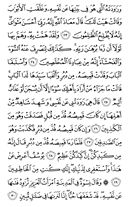 وَرَٰوَدَتْهُ ٱلَّتِى هُوَ فِى بَيْتِهَا عَن نَّفْسِهِۦ وَغَلَّقَتِ ٱلْأَبْوَٰبَ
وَقَالَتْ هَيْتَ لَكَ قَالَ مَعَاذَ ٱللَّهِ إِنَّهُۥ رَبِّىٓ أَحْسَنَ مَثْوَاىَ
إِنَّهُۥ لَا يُفْلِحُ ٱلظَّٰلِمُونَ ٢٣ وَلَقَدْ هَمَّتْ بِهِۦ وَهَمَّ بِهَا
لَوْلَآ أَن رَّءَا بُرْهَٰنَ رَبِّهِۦ كَذَٰلِكَ لِنَصْرِفَ عَنْهُ ٱلسُّوٓءَ
وَٱلْفَحْشَآءَ إِنَّهُۥ مِنْ عِبَادِنَا ٱلْمُخْلَصِينَ ٢٤ وَٱسْتَبَقَا ٱلْبَابَ
وَقَدَّتْ قَمِيصَهُۥ مِن دُبُرٍ وَأَلْفَيَا سَيِّدَهَا لَدَا ٱلْبَابِ قَالَتْ
مَا جَزَآءُ مَنْ أَرَادَ بِأَهْلِكَ سُوٓءًا إِلَّآ أَن يُسْجَنَ أَوْ عَذَابٌ
أَلِيمٌ ٢٥ قَالَ هِىَ رَٰوَدَتْنِى عَن نَّفْسِى وَشَهِدَ شَاهِدٌ مِّنْ أَهْلِهَآ
إِن كَانَ قَمِيصُهُۥ قُدَّ مِن قُبُلٍ فَصَدَقَتْ وَهُوَ مِنَ ٱلْكَٰذِبِينَ
٢٦ وَإِن كَانَ قَمِيصُهُۥ قُدَّ مِن دُبُرٍ فَكَذَبَتْ وَهُوَ مِنَ
ٱلصَّٰدِقِينَ ٢٧ فَلَمَّا رَءَا قَمِيصَهُۥ قُدَّ مِن دُبُرٍ قَالَ إِنَّهُۥ مِن
كَيْدِكُنَّ إِنَّ كَيْدَكُنَّ عَظِيمٌ ٢٨ يُوسُفُ أَعْرِضْ عَنْ
هَٰذَا وَٱسْتَغْفِرِى لِذَنۢبِكِ إِنَّكِ كُنتِ مِنَ ٱلْخَاطِـِٔينَ
٢٩ وَقَالَ نِسْوَةٌ فِى ٱلْمَدِينَةِ ٱمْرَأَتُ ٱلْعَزِيزِ تُرَٰوِدُ فَتَىٰهَا عَن
نَّفْسِهِۦ قَدْ شَغَفَهَا حُبًّا إِنَّا لَنَرَىٰهَا فِى ضَلَٰلٍ مُّبِينٍ ٣٠